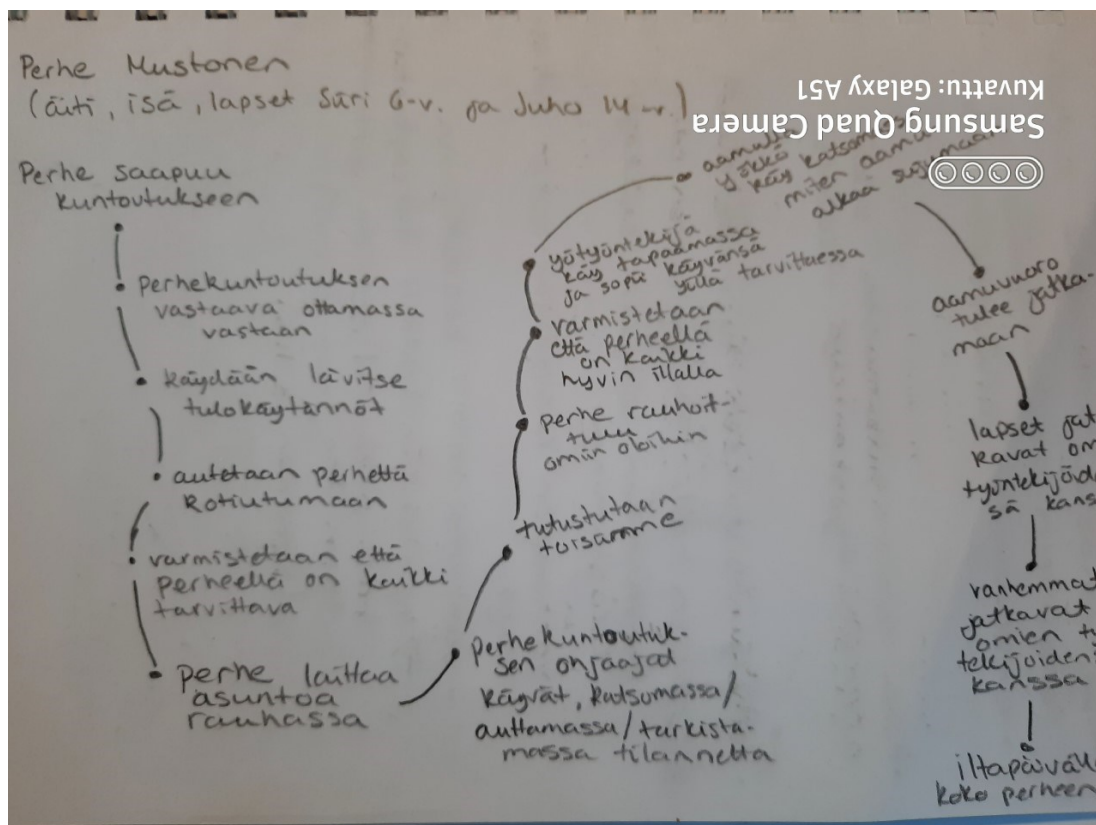 Perhe Mustonen
(äiti, isä, lapset Siiri 6-v. ja Juho 14-v.)
Perhe saapuu
kuntoutukseen
perhekuntoutuksen
vastaava ottamassa
vastaan
käydään lävitse
tulokäytännöt
autetaan perhettä
kotiutumaan
varmistetaan että
perheellä on kaikki
tarvittava
perhe laittaa
asuntoa
rauhassa
perhekuntoutuk-
sen ohjaajat
käyvät, katsomassa/
auttamassa/tarkista-
massa tilannetta
tutustutaan
toisiimme
perhe rauhoit-
tuu
omiin oloihin
varmistetaan
että perheellä
on kaikki
hyvin illalla
yötyöntekijä
käy tapaamassa
ja sopii käyvänsä
yöllä tarvittaessa
aamulla
yökkö
käy katsomassa
miten aamu
alkaa sujumaan
aamuvuoro
tulee jatka-
maan
lapset jat
kavat om
työntekijöide
sä kans
vanhemmat
jatkavat
omien t
tekijöiden
kanssa
iltapäiväll
koko perheen
Samsung Quad Camera
Kuvattu: Galaxy A51